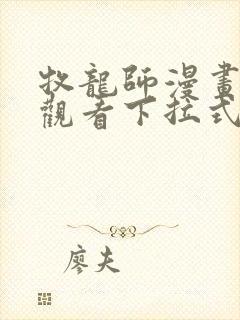 牧龍師漫畫
觀看下拉式
廖夫